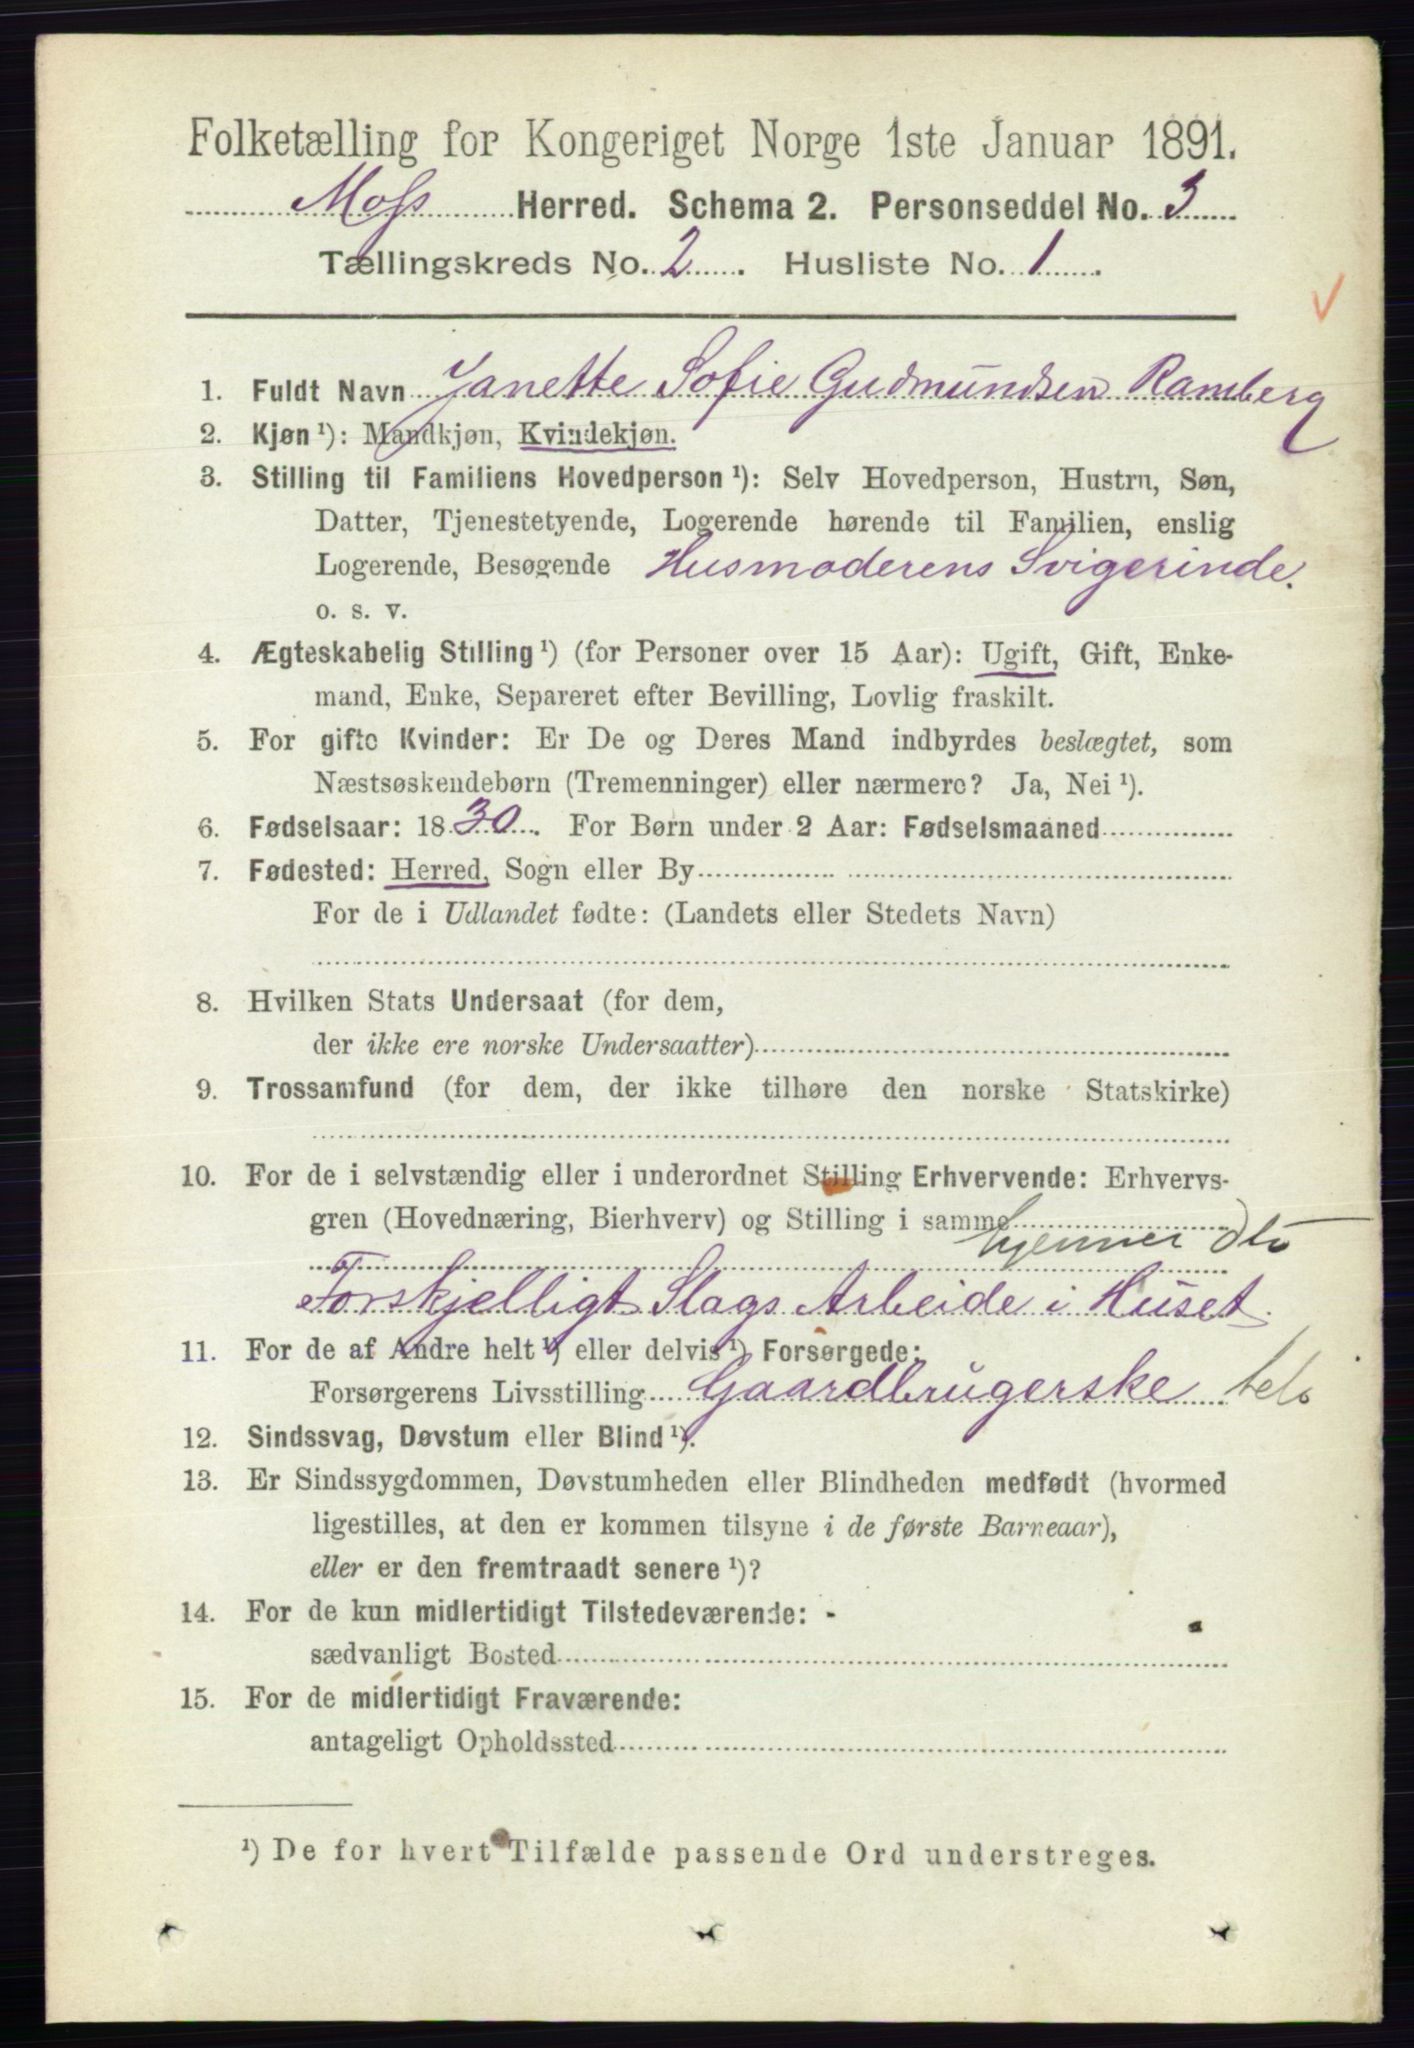 Folketælling for Kongeriget Norge 1ste Januar 1891.
Moss Herred. Schema 2. Personseddel No. 3
Tællingskreds No. 2. Husliste No. 1.
1. Fuldt Navn Janette Sofie Gudmundsen Ramberg
2. Kjøn ¹): Mandkjøn, Kvindekjøn.
3. Stilling til Familiens Hovedperson ¹): Selv Hovedperson, Hustru, Søn,
Datter, Tjenestetyende, Logerende hørende til Familien, enslig
Logerende, Besøgende Husmoderens Svigerinde.
o. s. v.
4. Ægteskabelig Stilling ¹) (for Personer over 15 Aar): Ugift, Gift, Enke-
mand, Enke, Separeret efter Bevilling, Lovlig fraskilt.
5. For gifte Kvinder: Er De og Deres Mand indbyrdes beslægtet, som
Næstsøskendebørn (Tremenninger) eller nærmere? Ja, Nei ¹).
6. Fødselsaar: 1830. For Børn under 2 Aar: Fødselsmaaned
7. Fødested: Herred, Sogn eller By
For de i Udlandet fødte: (Landets eller Stedets Navn)
8. Hvilken Stats Undersaat (for dem,
der ikke ere norske Undersaatter)
9. Trossamfund (for dem, der ikke tilhøre den norske Statskirke)
10. For de i selvstændig eller i underordnet Stilling Erhvervende: Erhvervs-
gren (Hovednæring, Bierhverv) og Stilling i samme
Forskjelligt Slags Arbeide i Huset.
11. For de af Andre helt ¹) eller delvis ¹) Forsørgede:
Forsørgerens Livsstilling Gaardbrugerske
12. Sindssvag, Døvstum eller Blind ¹).
13. Er Sindssygdommen, Døvstumheden eller Blindheden medfødt (hvormed
ligestilles, at den er kommen tilsyne i de første Barneaar),
eller er den fremtraadt senere ¹)?
14. For de kun midlertidigt Tilstedeværende:
sædvanligt Bosted
15. For de midlertidigt Fraværende:
antageligt Opholdssted
¹) De for hvert Tilfælde passende Ord understreges.